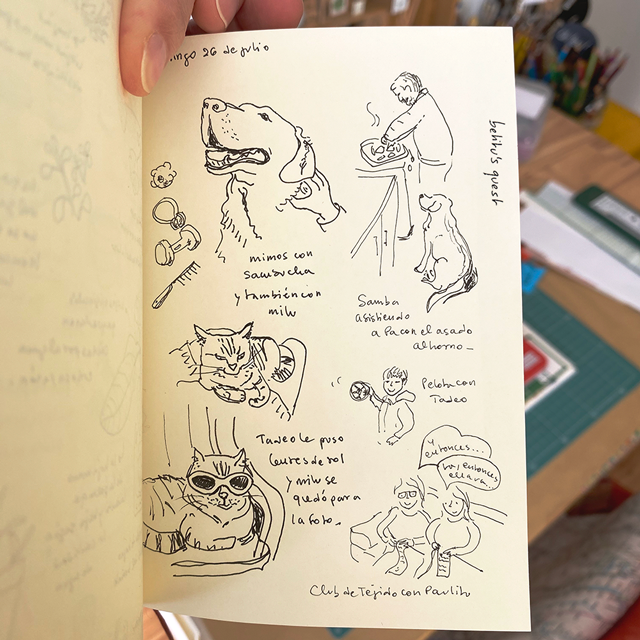 ngo 26 de julio
belitu's quest
mimos con
sambucha
y también con
milu
Samba
asistiendo
a Pa con el asado
al horno_
Pelota con
Tadeo
Tadeo le puso
lentes de sol
y milu se
quedó para
la foto_
y
entonces...
entonces
Club de Tejido con Paulitu